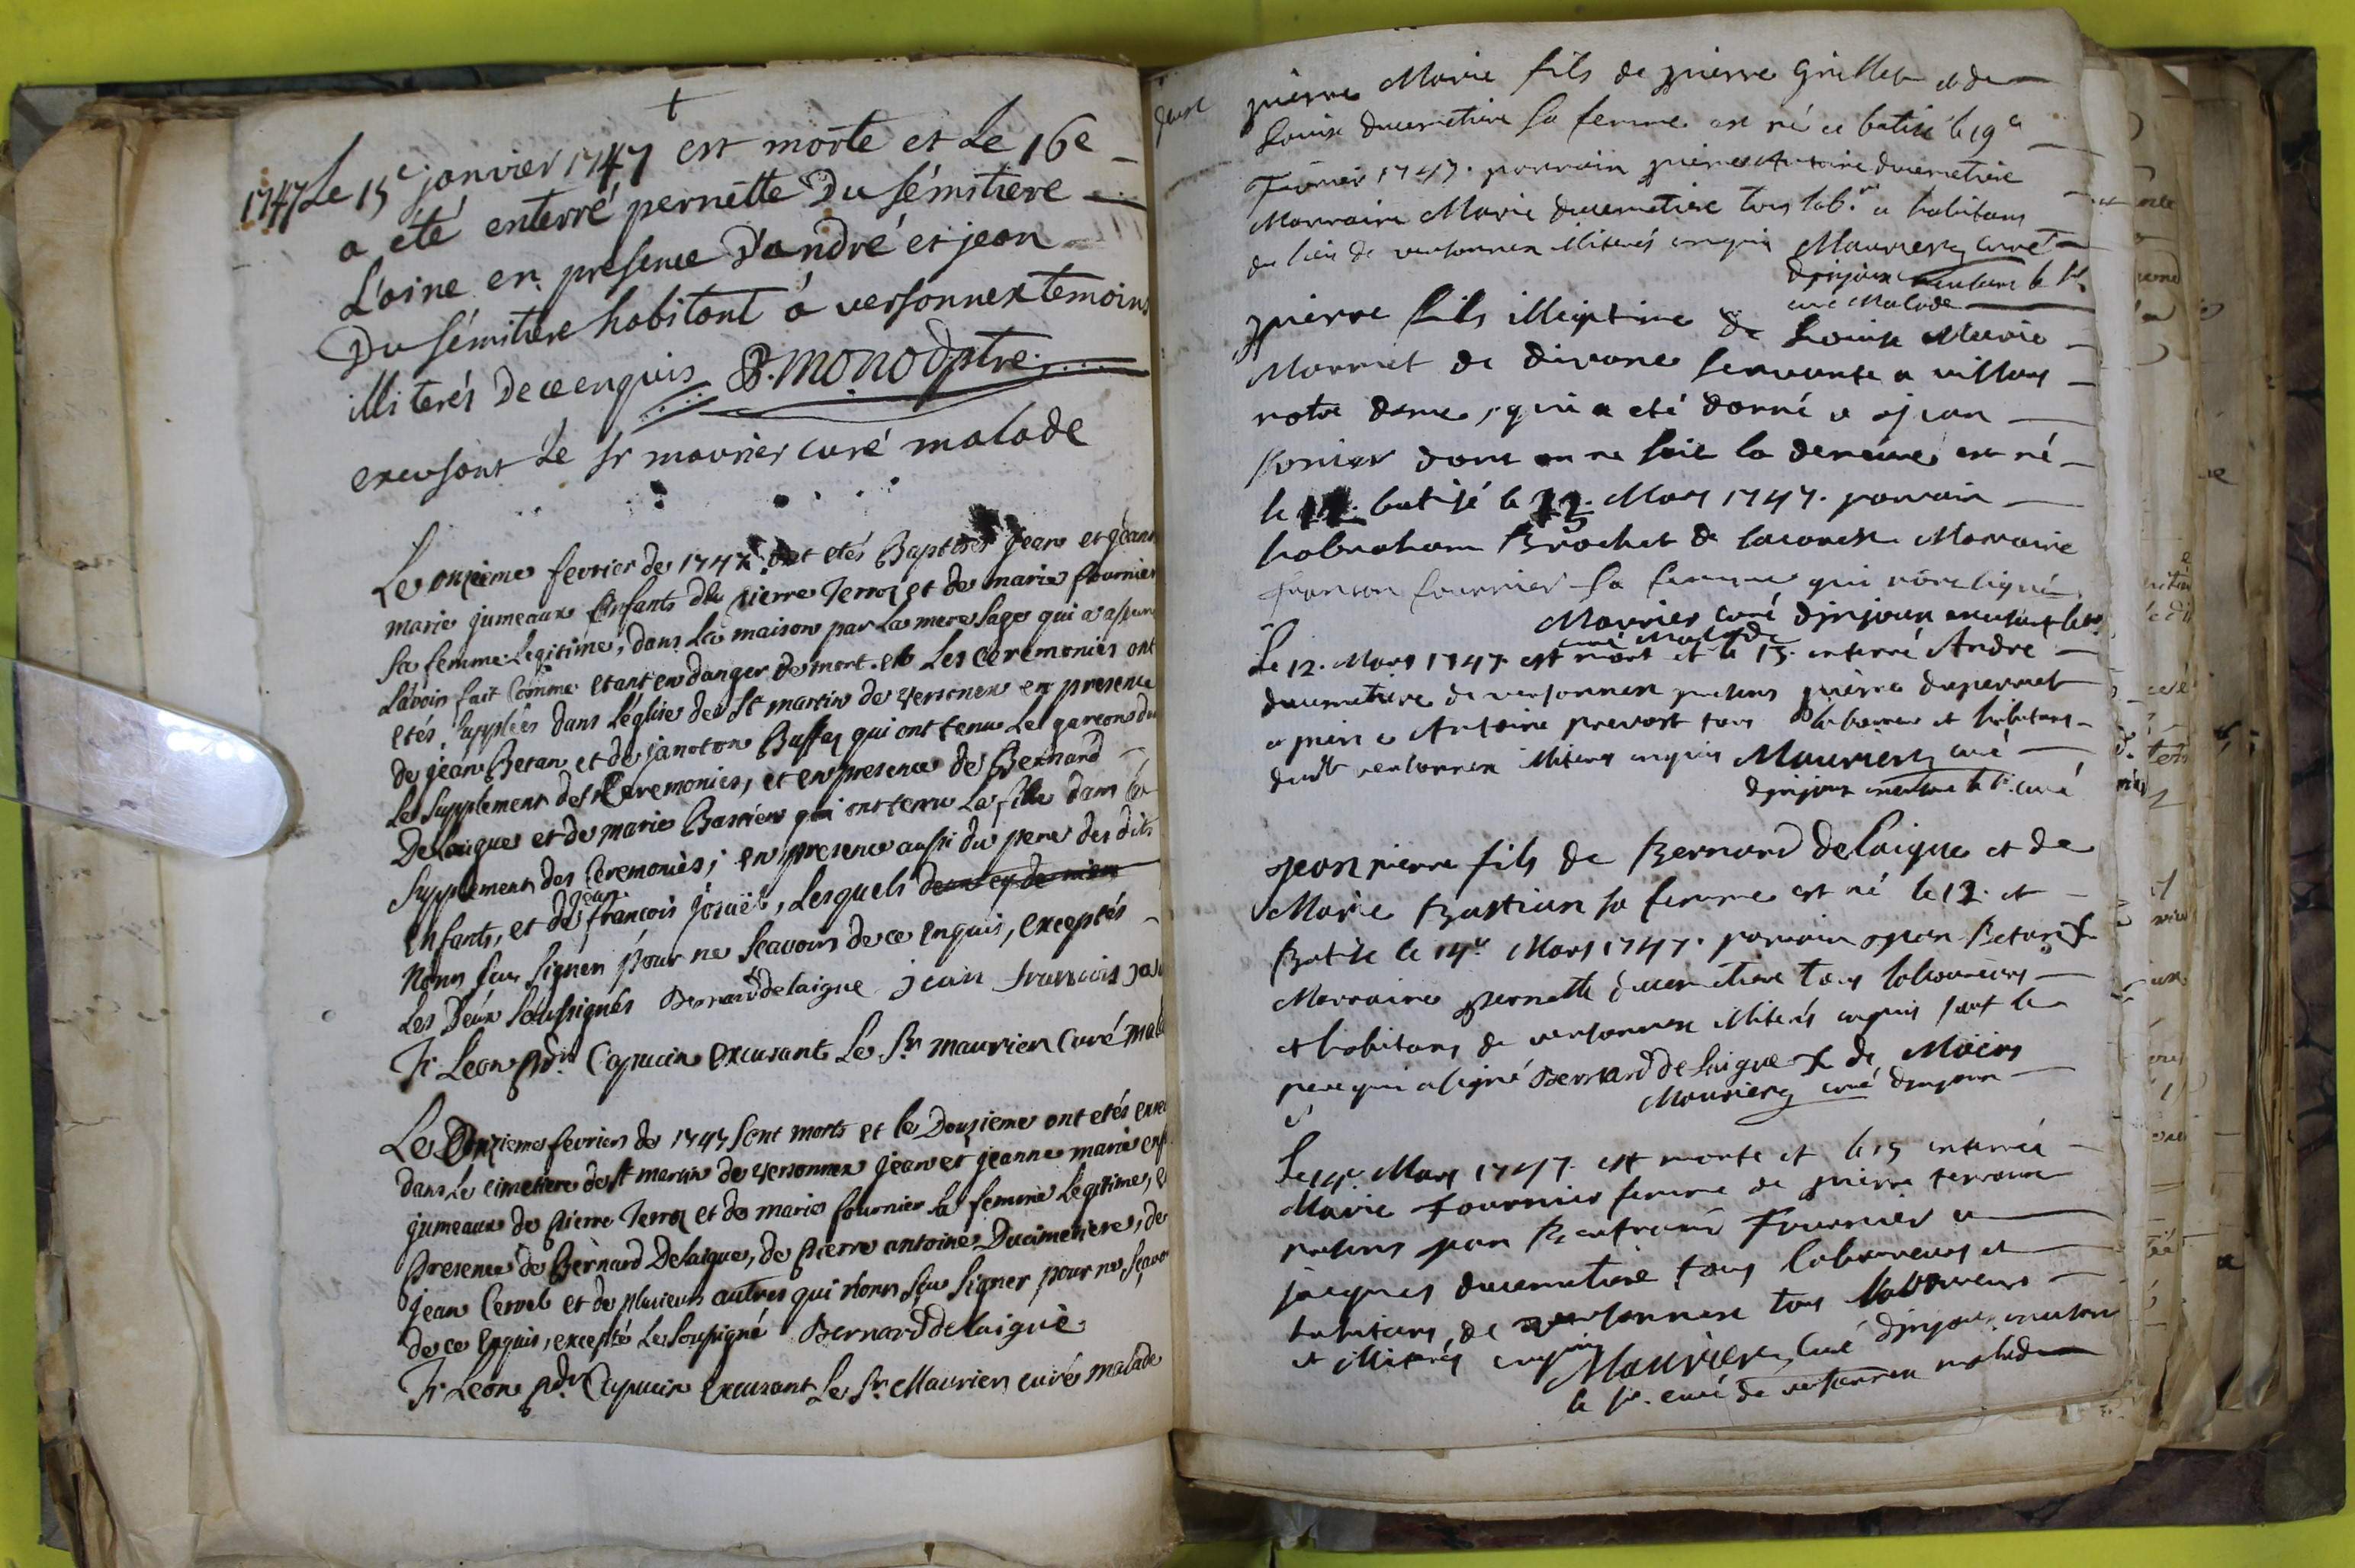 +
1747 Le 15e janvier 1747 est morte et Le 16e
a été enterré pernette Du sémitiere
L'aine en presence D'andré et jean
Du sémitiere habitant à versonnex temoins
illiterés De ce enquis B. monod ptre.
excusant Le Sr maurier curé malade
Le onzieme fevrier de 1747 ont etés Baptisés jean et jeanne
marie jumeaux Enfants de pierre Terroz et de marie fournier
sa femme Legitime, dans la maison par La mere sage qui a assuré
L'avoir fait Comme etant en danger de mort. et Les ceremonies ont
etés supplées dans L'église de St martin de versonnex en presence
de jean Betan et de janoton Buffaz qui ont tenu Le garçon du
Le supplement des Ceremonies, et en presence de Bernard
Delaigue et de marie Bastien qui ont tenu La fille dans le
supplement des Ceremonies, en presence aussi du pere des dits
Enfants, et de jean françois josuët, Lesquels
n'ont sçu signer pour ne sçavoir de ce enquis, exceptés
Les Deux soussignés Bernard delaigue jean francois
Fr Leon pdr Capucin excusant Le Sr maurier Curé malade
Le Onzieme fevrier de 1747 sont morts et le Douzieme ont etés
dans Le cimetiere de St martin de versonnex jean et jeanne marie
jumeaux de pierre Terroz et de marie fournier sa femme Legitime, en
presence de Bernard Delaigue, de pierre antoine Ducimetiere, de
jean Cervel et de plusieurs autres qui n'ont sçu signer pour ne sçavoir
de ce enquis, excepté Le soussigné Bernard delaigue
Fr Leon pdr Capucin excusant Le Sr Maurier curé malade
pierre Marie fils de pierre Grillet et de
Louise ducemetiere sa femme est né et batisé le 19e
Fevrier 1747. parrain pierre Antoine ducemetiere
Marraine Marie ducemetiere tous labrs et habitans
du lieu de versonnex illiterés enquis Maurier curé
d'jvjoux excusant le Sr
curé Malade
pierre fils illegitime de Louise Marie
Marmet de divone servante a
notre dame, qui a eté donné a jean
dont on ne scait la demeure est né
le batisé le Mars 1747. parrain
habraham Brochet de Marraine
françon fournier sa femme qui
Maurier curé d'jvjoux excusant le Sr
curé Malade
Le 12. Mars 1747. est mort et le 13. enterré André
ducemetiere de versonnex presens pierre duperret
et pierre Antoine prevost tous laboureurs et habitans
dudt versonnex illiterés enquis Maurier curé
d'jvjoux excusant le Sr. curé
Jean pierre fils de Bernard delaigue et de
Marie Bastian sa femme est né le 12. et
Batisé le 14e Mars 1747. parrain jean Betan
Marraine pernette ducemetiere tous laboureurs
et habitans de versonnex illiterés enquis sauf le
pere qui a signé Bernard delaigue de Moëns
Maurier curé d'jvjoux
Le 14e Mars 1747. est morte et le 15 enterrée
Marie Fournier femme de pierre terroux
presens jean fournier et
jacques ducemetiere tous laboureurs et
habitans de versonnex tous laboureurs
et illiterés enquis Maurier curé d'jvjoux excusant
le Sr. curé de versonnex malade